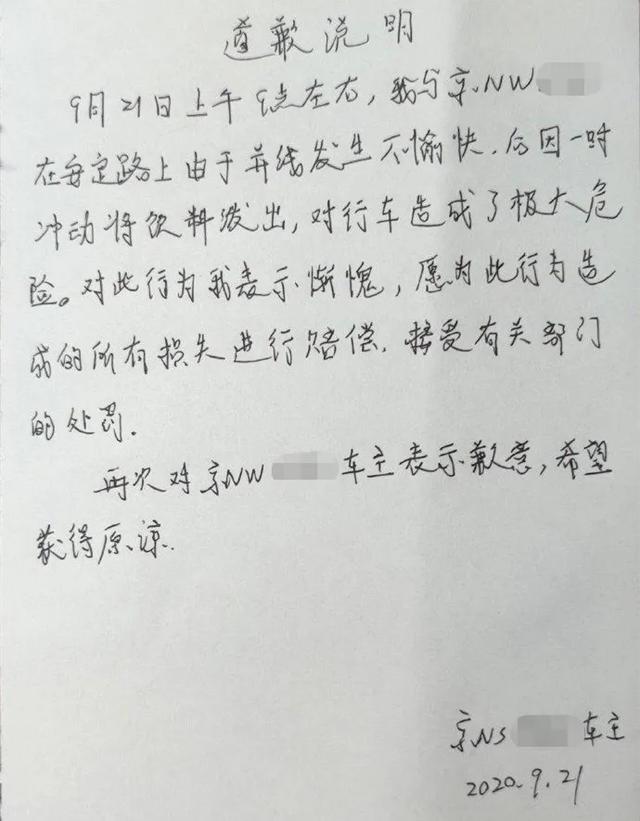 道歉说明
9月21日上午9点左右，我与京NW
在安定路上由于并线发生不愉快.后因一时
冲动将饮料泼出，对行车造成了极大危
险。对此行为我表示惭愧，愿为此行为造
成的所有损失进行赔偿.接受有关部门
的处罚.
再次对京NW 车主表示歉意，希望
获得原谅.
京NS 车主
2020.9.21